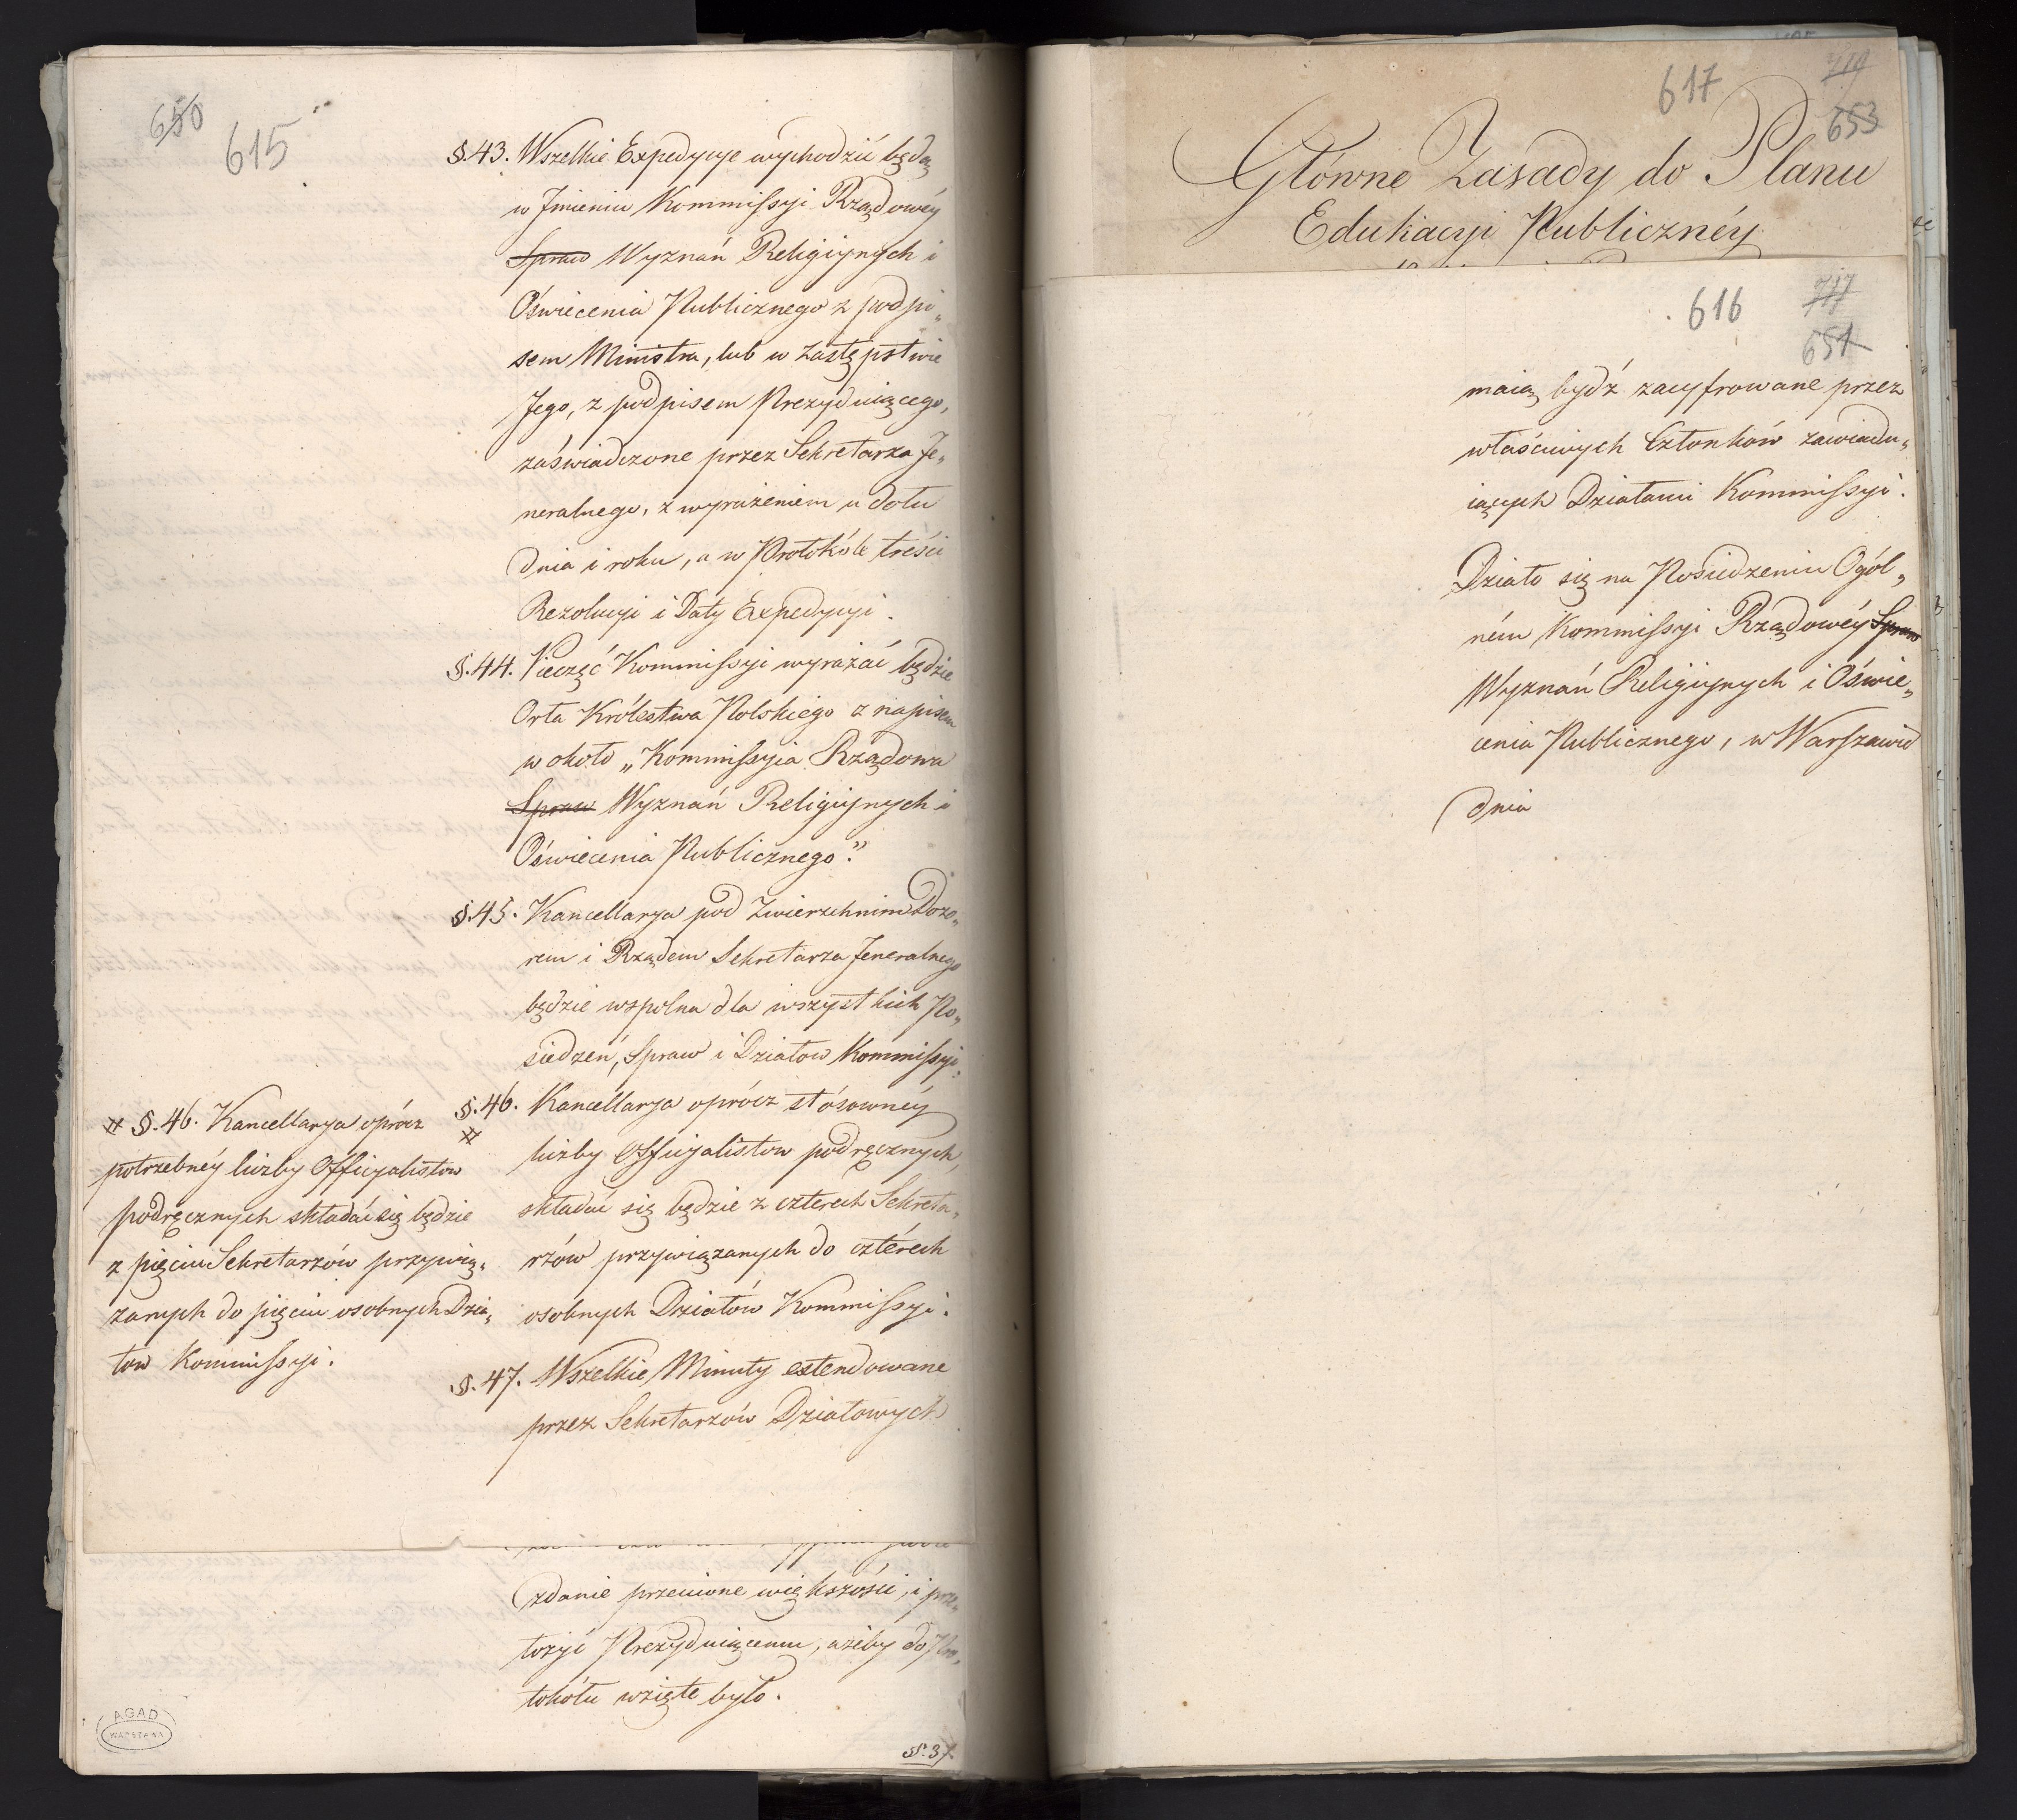 650
615
§.43. Wszelkie Expedycye wychodzić będą
w Jmieniu Kommissyi Rządowéy
Spraw Wyznań Religiynych i
Oświecenia Publicznego z podpi„
sem Ministra, lub w zastępstwie
Jego, z podpisem Prezyduiącego,
zaświadczone przez Sekretarza Je„
neralnego, z wyrażeniem u dołu
dnia i roku, a w Protokóle treści
Rezolucyi i Daty Expedycyi.
§.44. Pieczęć Kommissyi wyrażać będzie
Orła Królestwa Polskiego z napisem
w około „Kommissyia Rządowa
Spraw Wyznań Religiynych i
Oświecenia Publicznego."
§.45. Kancellarya pod Zwierzchnim Dozo„
rem i Rządem Sekretarza Jeneralnego
będzie wspolna dla wszystkich Po„
siedzeń, Spraw i Działow Kommissyi.
§.46. Kancellarya oprócz stósownéy
liczby Officyalistow podręcznych,
składać się będzie z czterech Sekreta„
rzów przywiązanych do czterech
osobnych Działów Kommissyi.
§.47. Wszelkie Minuty extendowane
przez Sekretarzów Działowych
§.46. Kancellarya oprócz
potrzebnéy liczby Officyalistow
podręcznych składać się będzie
z pięciu Sekretarzów przywią„
zanych do pięciu osobnych Dzia„
łow Kommissyi.
zdanie przeciwne większości, i prze„
łożyć Prezyduiącemu, ażeby do Pro„
tokółu wzięte było.
AGAD
WARSZAWA
§.37.
617
719
653
Główne Zasady do Planu
Edukacyi Publicznéy
616
717
651
maią bydź zacyfrowane przez
właściwych Członków zawiadu„
iących Działami Kommissyi.
Działo się na Posiedzeniu Ogól„
ném Kommissyi Rządowéy Spraw
Wyznań Religiynych i Oświe„
cenia Publicznego, w Warszawie
dnia